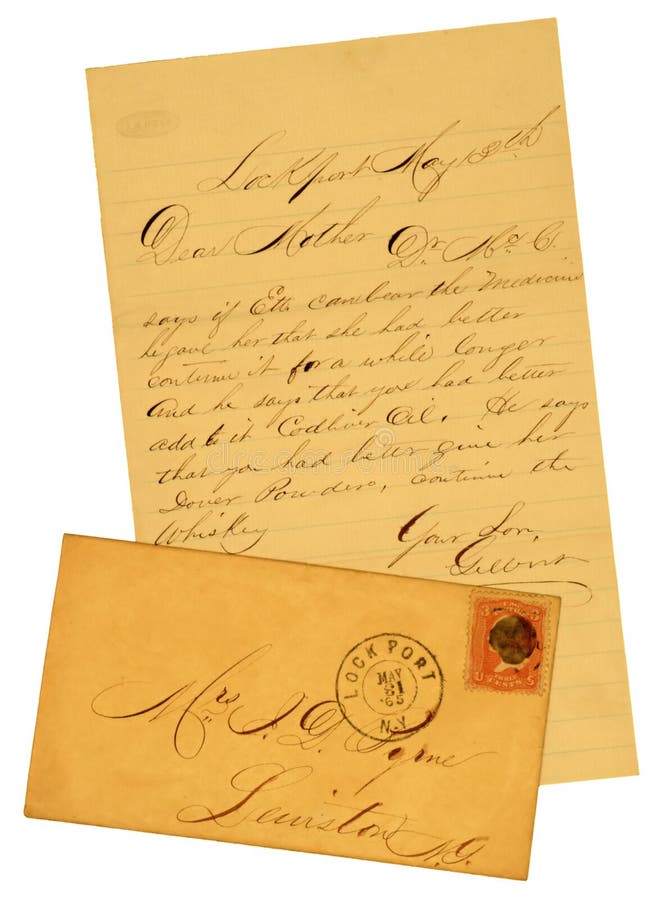 Lockport May 12th
Dear Mother Dr. Mc. C.
says if Ett. can bear the Medicine
he gave her that she had better
continue it for a while longer
And he says that you had better
add to it Codliver Oil. He says
that you had better give her
Dover Powders, continue the
Whiskey Your Son,
Gilbert
LOCKPORT
MAY
31
'65
N.Y.
3 3
THREE
CENTS
Mrs J. D.
Lewiston
N.Y.
dreamstime